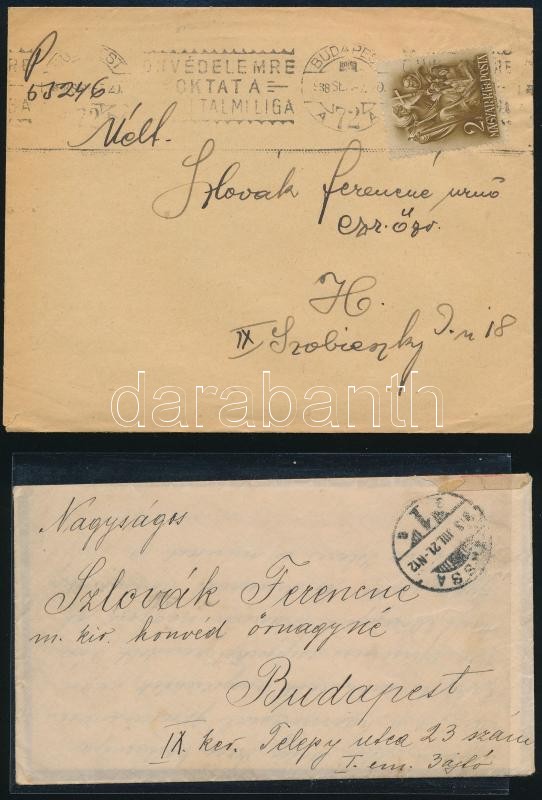 P
65246
BUDAPEST
ÖNVÉDELEMRE
OKTAT A
LÉGOLTALMI LIGA
BUDAPEST
72
A A
2f
MAGYAR KIR. POSTA
Mélt.
Szlovák Ferencné urnő
ezr. özv.
H.
IX Szobieszky J. u 18
darabanth
Nagyságos
Szlovák Ferencné
m. kir. honvéd őrnagyné
Budapest
IX. ker. Telepy utca 23 szám
I. em. 3 ajtó
VIII 21.-N12